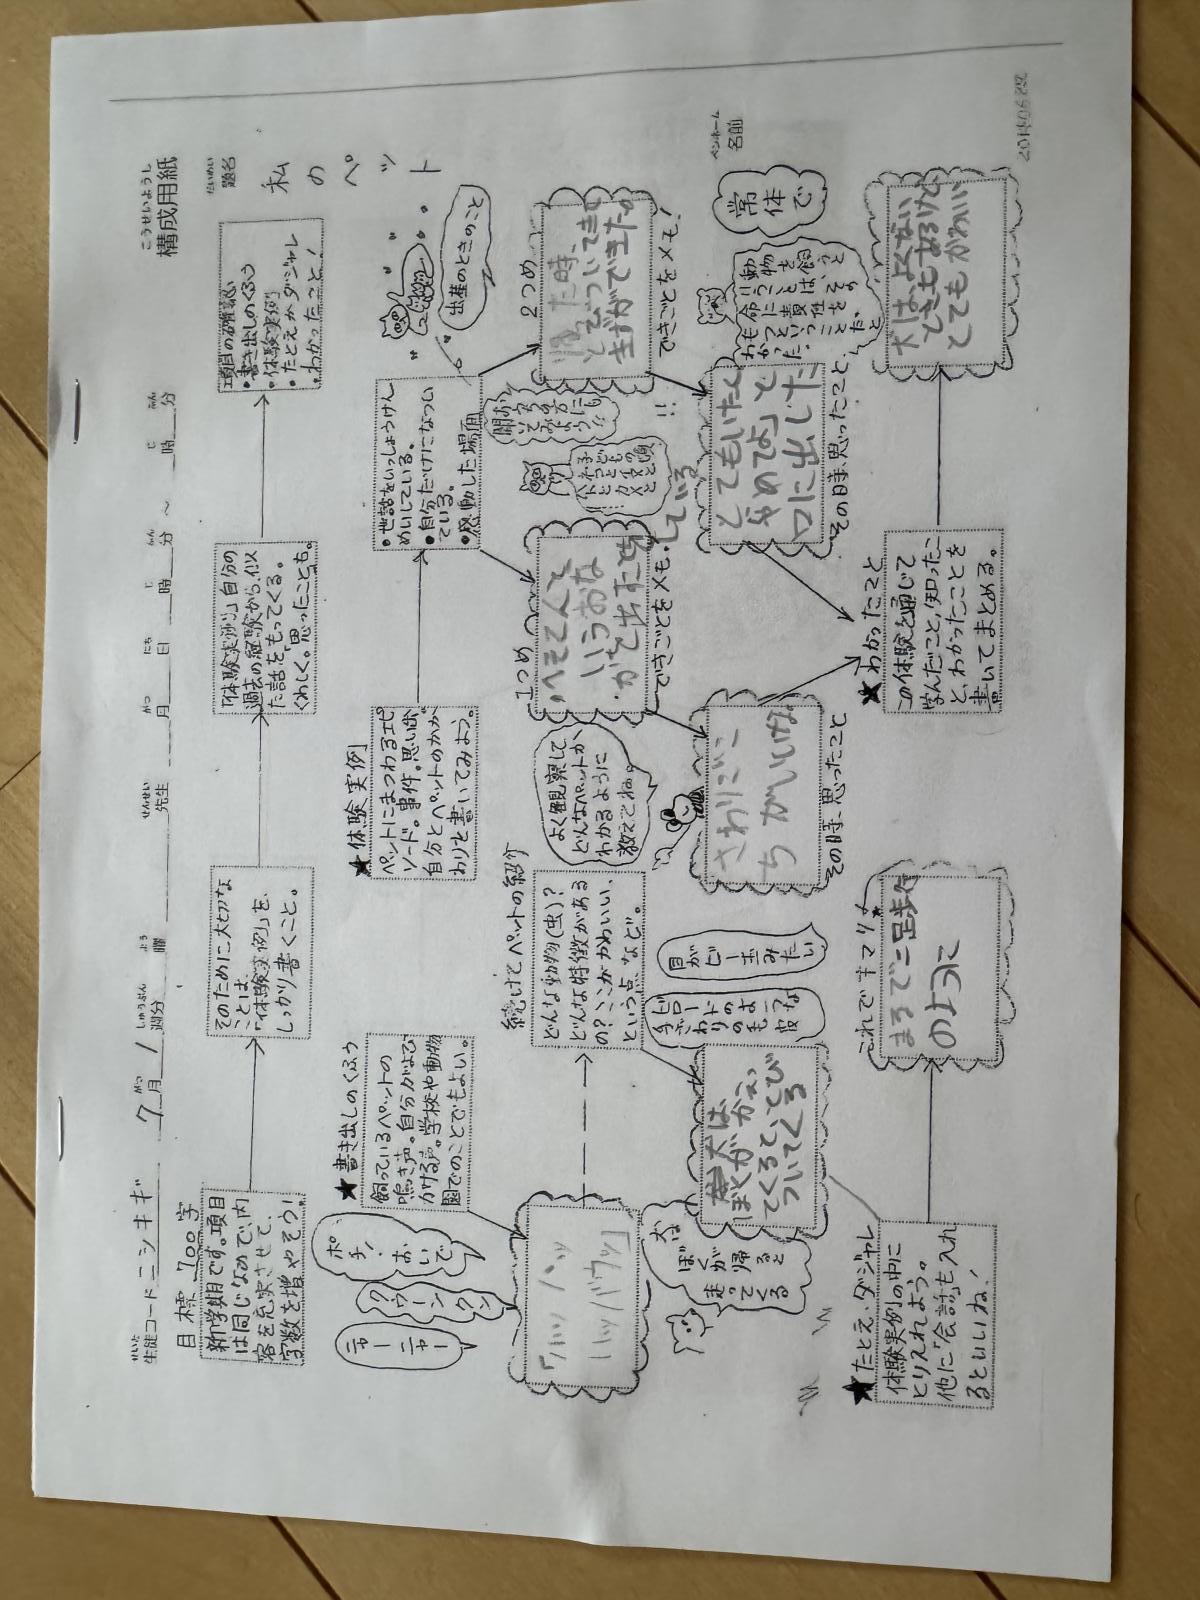 こうせいようし
構成用紙
せいと
生徒コード ニシキギ 7月 1週分 曜 先生 月 日 時 分 ～ 時 分
目標 700字
だいめい
題名
私のペット
新学期です。項目
は同じなので、内
容を充実させて、
字数を増やそう！
そのために大切な
ことは、
「体験実例」を、
しっかり書くこと。
「体験実例」自分の
過去の経験から、似
た話をもってくる。
くわしく。思ったことも。
項目の確認
・書き出しのくふう
・体験実例
・たとえかダジャレ
・わかったこと！
★書き出しのくふう
飼っているペットの
鳴き声。自分がよび
かける声。学校や動物
園でのことでもよい。
ポチ！
おいで
クウーン
クン
ニャー
ニャー
続けてペットの紹介
どんな動物(虫)？
どんな特徴がある
の？ここがかわいい、
という点、など。
よく観察して、
どんなペットか、
わかるように
教えてね。
目がビー玉みたい
犬は
ぼくが帰ると
走ってくる
犬は、
ぼくがかえっ
てくると、とび
ついてくる
★体験実例
ペットにまつわるエピ
ソード。事件。思い出。
自分とペットのかか
わりを書いてみよう。
・世話をいっしょうけん
めいしている。
・自分だけになつい
ている。
・感動した場面
出産のときのこと
1つめ
へそてんと
いうおな
かを出した
している
できごとをメモ！
さわりごこ
ちがいいな
その時、思ったこと
2つめ
た時、
とびついてきて
きずができた
できごとをメモ！
とてもいたくて
「やめてよ」と
口に出した
その時、思ったこと
★たとえ・ダジャレ
体験実例の中に
とりいれよう。
他に「会話」も入れ
るといいね！
これでキマリ！
まるで二足歩行
のように
★わかったこと
この体験を通じて
学んだこと、知ったこ
と、わかったことを
書いてまとめる。
犬は、よくない
ときもあるけど
とてもかわいい
常体で
ペンネーム
名前